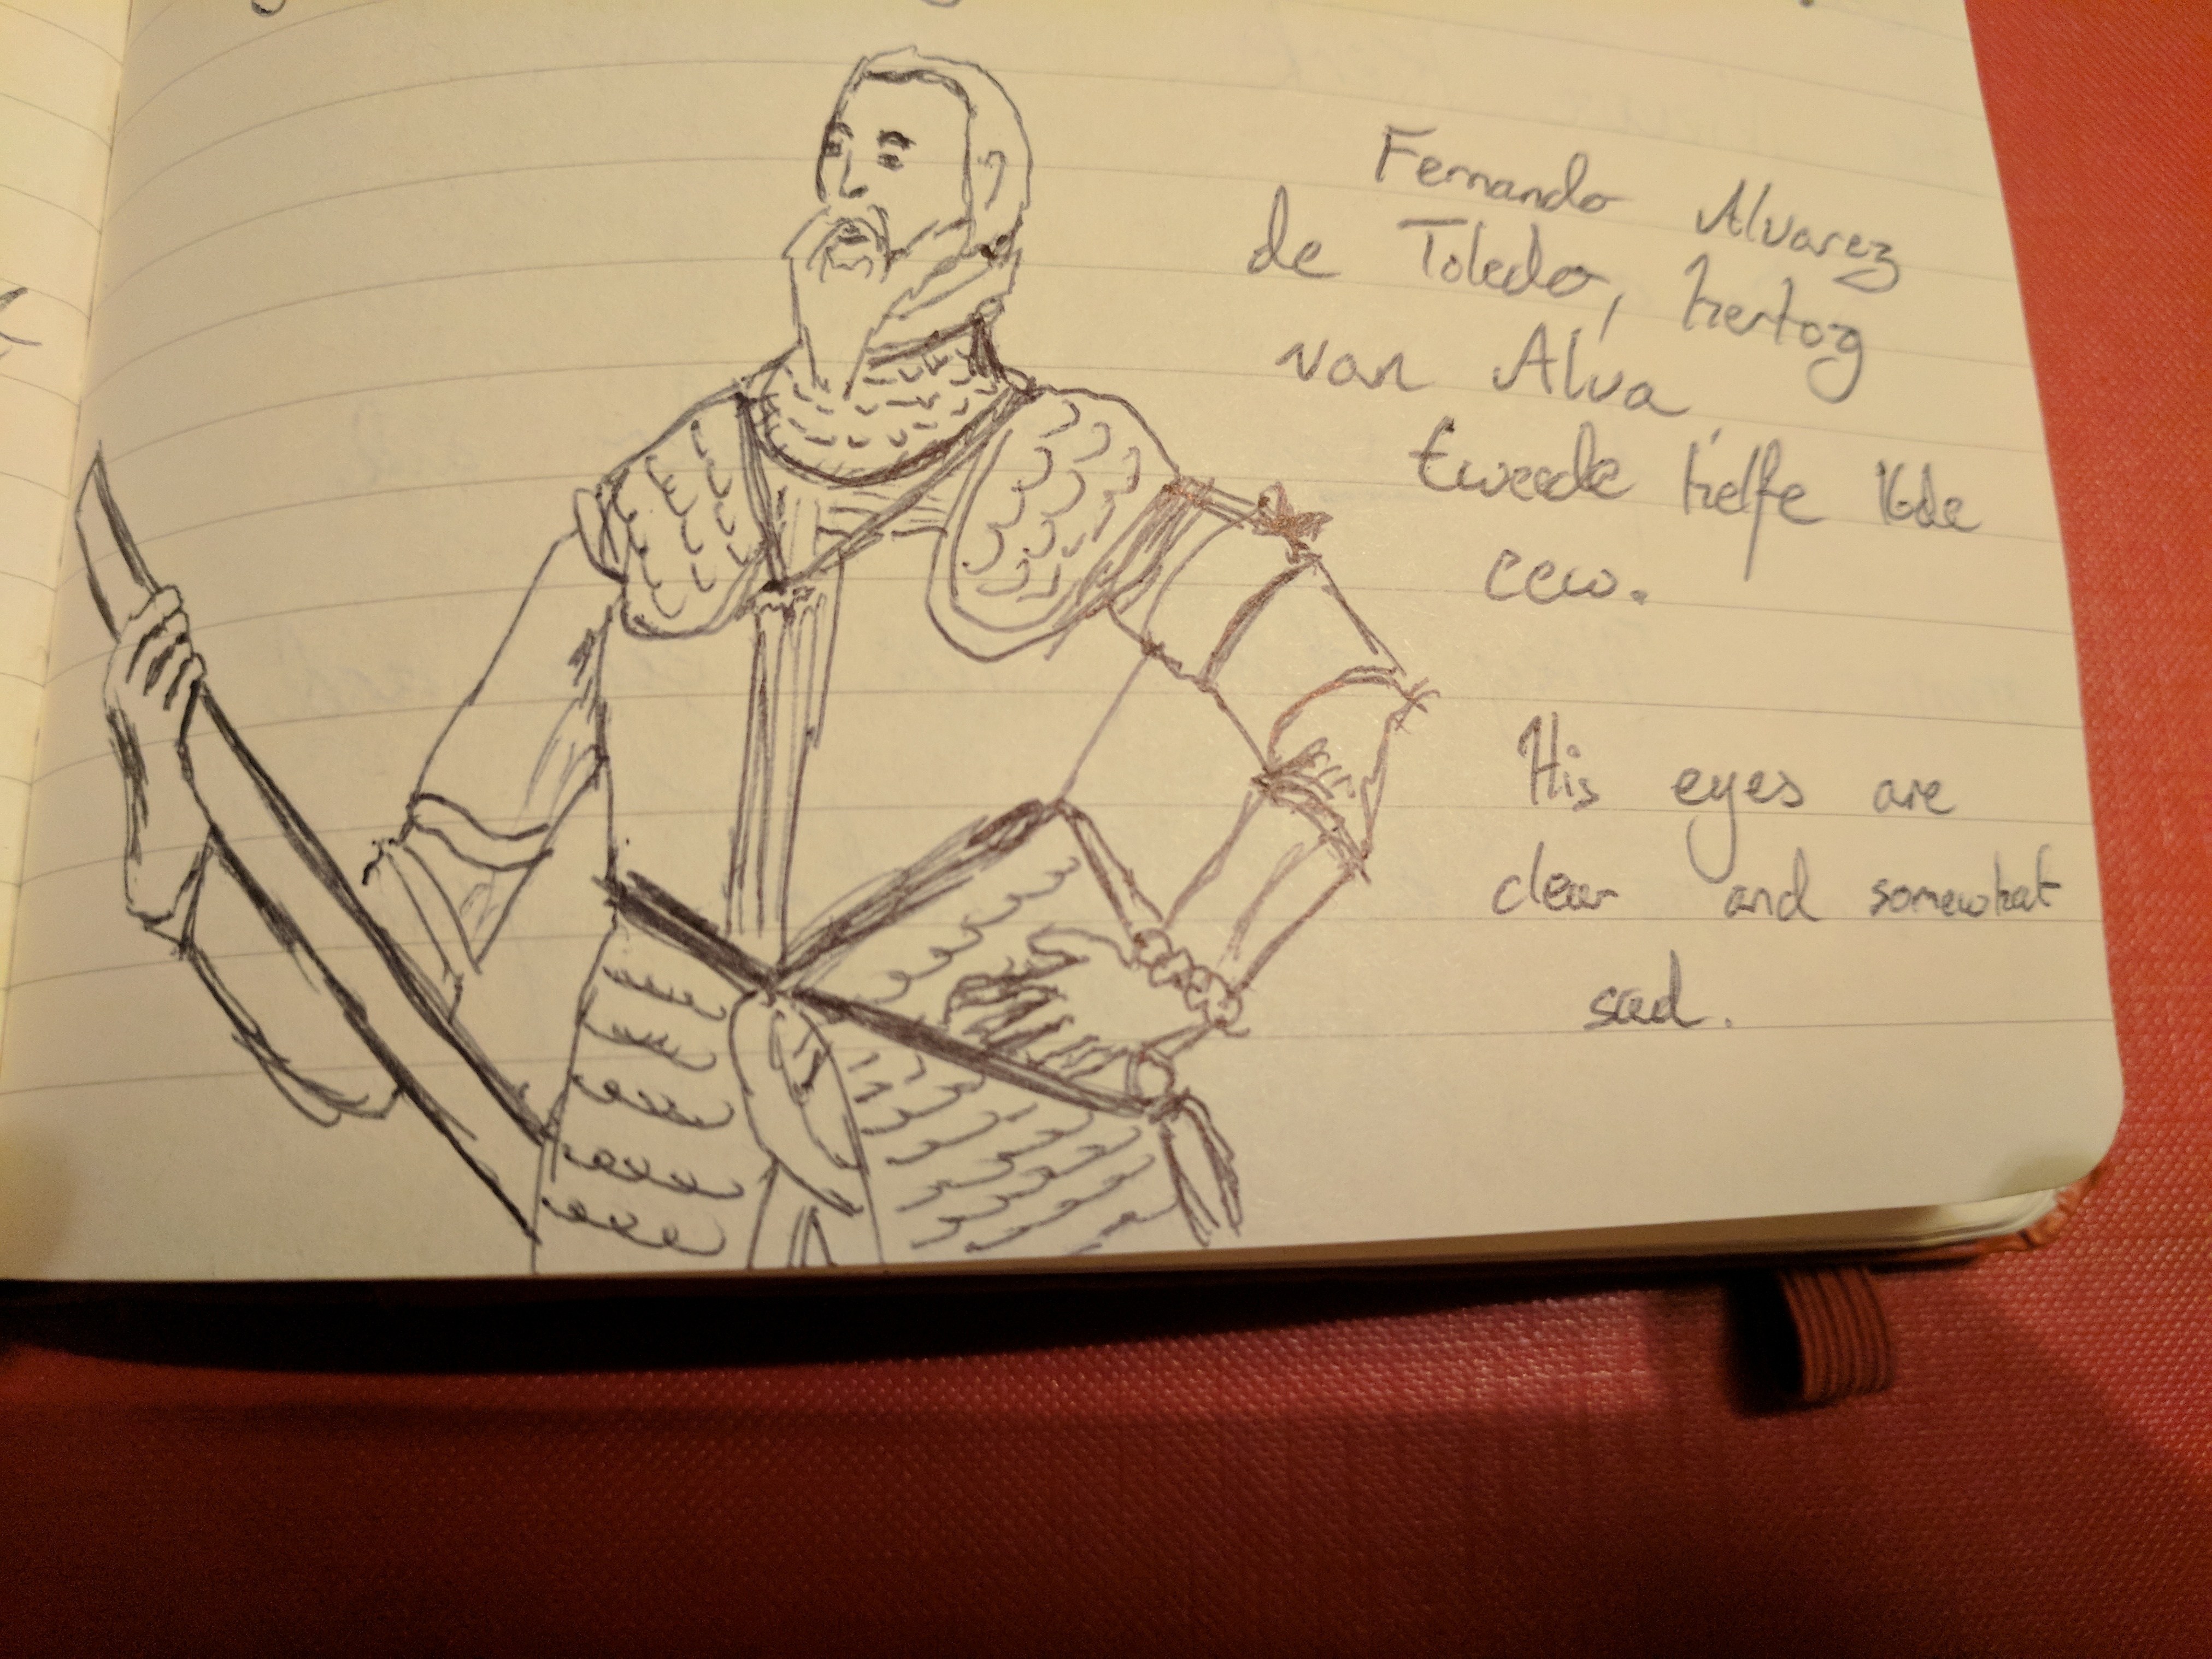 Fernando Alvarez
de Toledo, hertog
van Alva
tweede helfe 16de
eeuw.
His eyes are
clear and somewhat
sad.